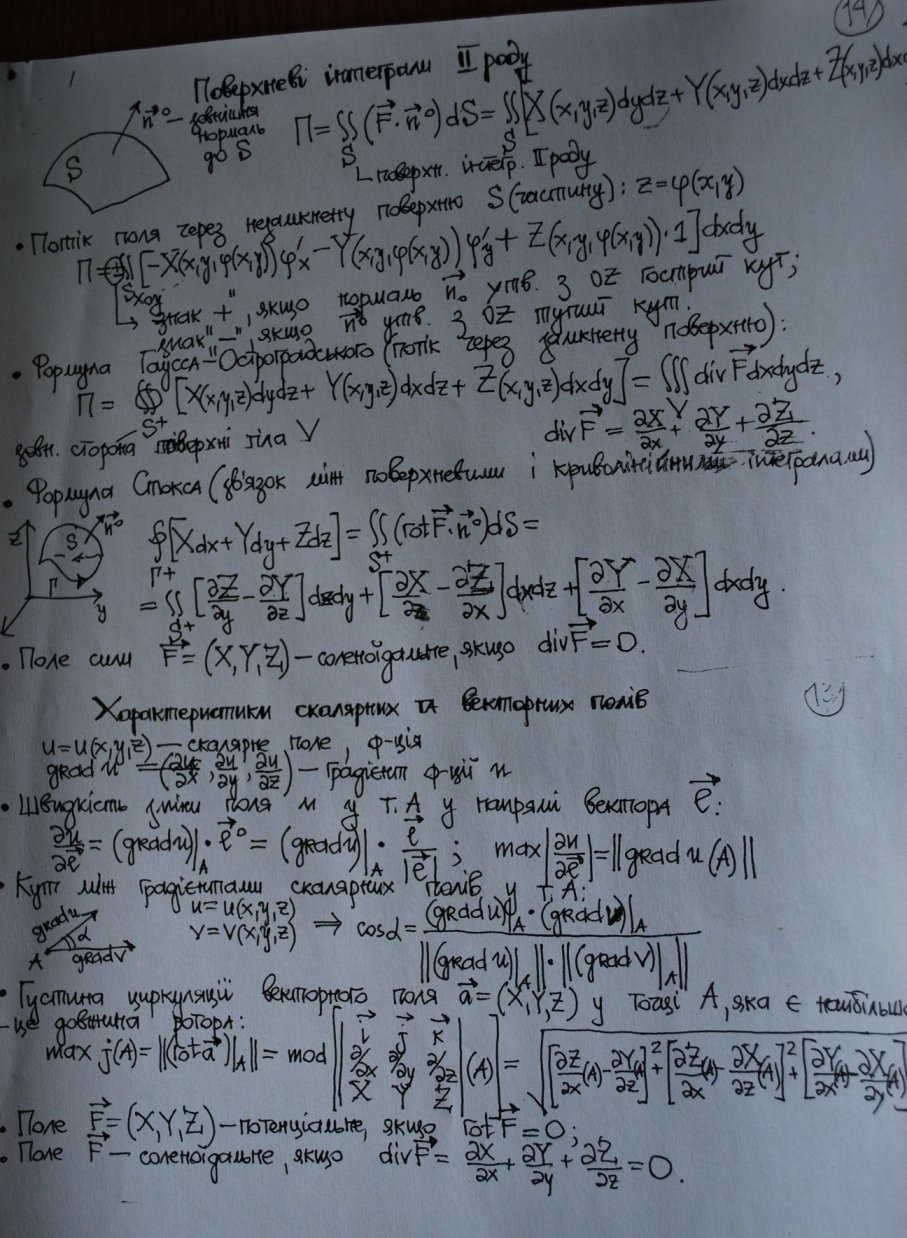 14
Поверхневі інтеграли II роду
n⃗° – зовнішня нормаль до S
S
П = ∬_S (F⃗·n⃗°)dS = ∬_S [X(x,y,z)dydz + Y(x,y,z)dxdz + Z(x,y,z)dxd
поверхн. інтегр. II роду
• Потік поля через незамкнену поверхню S (частину): z=φ(x,y)
П = ⊕∬_Sxoy [-X(x,y,φ(x,y))φ'x – Y(x,y,φ(x,y))φ'y + Z(x,y,φ(x,y))·1]dxdy
знак "+", якщо нормаль n⃗° утв. з OZ гострий кут;
знак "–", якщо n⃗° утв. з OZ тупий кут.
• Формула Гаусса-Остроградського (потік через замкнену поверхню):
П = ∯_S+ [X(x,y,z)dydz + Y(x,y,z)dxdz + Z(x,y,z)dxdy] = ∭_V div F⃗ dxdydz,
зовн. сторона поверхні тіла V
div F⃗ = ∂X/∂x + ∂Y/∂y + ∂Z/∂z.
• Формула Стокса (зв'язок між поверхневими і криволінійними інтегралами)
z S n⃗° Γ y
∮_Γ+ [Xdx + Ydy + Zdz] = ∬_S+ (rot F⃗·n⃗°)dS =
= ∬_S+ [∂Z/∂y – ∂Y/∂z]dzdy + [∂X/∂z – ∂Z/∂x]dxdz + [∂Y/∂x – ∂X/∂y]dxdy.
• Поле сили F⃗ = (X,Y,Z) – соленоїдальне, якщо div F⃗ = 0.
13
Характеристики скалярних та векторних полів
u = u(x,y,z) – скалярне поле, ф-ція
grad u = (∂u/∂x, ∂u/∂y, ∂u/∂z) – градієнт ф-ції u
• Швидкість зміни поля u у т. A у напрямі вектора e⃗:
∂u/∂e⃗ = (grad u)|_A · e⃗° = (grad u)|_A · e⃗/|e⃗| ; max|∂u/∂e⃗| = ||grad u(A)||
• Кут між градієнтами скалярних полів у т. A:
grad u α A grad v
u = u(x,y,z)
v = v(x,y,z) ⇒ cos α = (grad u)|_A · (grad v)|_A / ||(grad u)|_A||·||(grad v)|_A||
• Густина циркуляції векторного поля a⃗ = (X,Y,Z) у точці A, яка є найбільшо
– це довжина ротора:
max j(A) = ||(rot a⃗)|_A|| = mod |i⃗ j⃗ k⃗; ∂/∂x ∂/∂y ∂/∂z; X Y Z| (A) = √([∂Z/∂x(A) – ∂Y/∂z(A)]² + [∂Z/∂x(A) – ∂X/∂z(A)]² + [∂Y/∂x(A) – ∂X/∂y(A)]
• Поле F⃗ = (X,Y,Z) – потенціальне, якщо rot F⃗ = 0;
• Поле F⃗ – соленоїдальне, якщо div F⃗ = ∂X/∂x + ∂Y/∂y + ∂Z/∂z = 0.